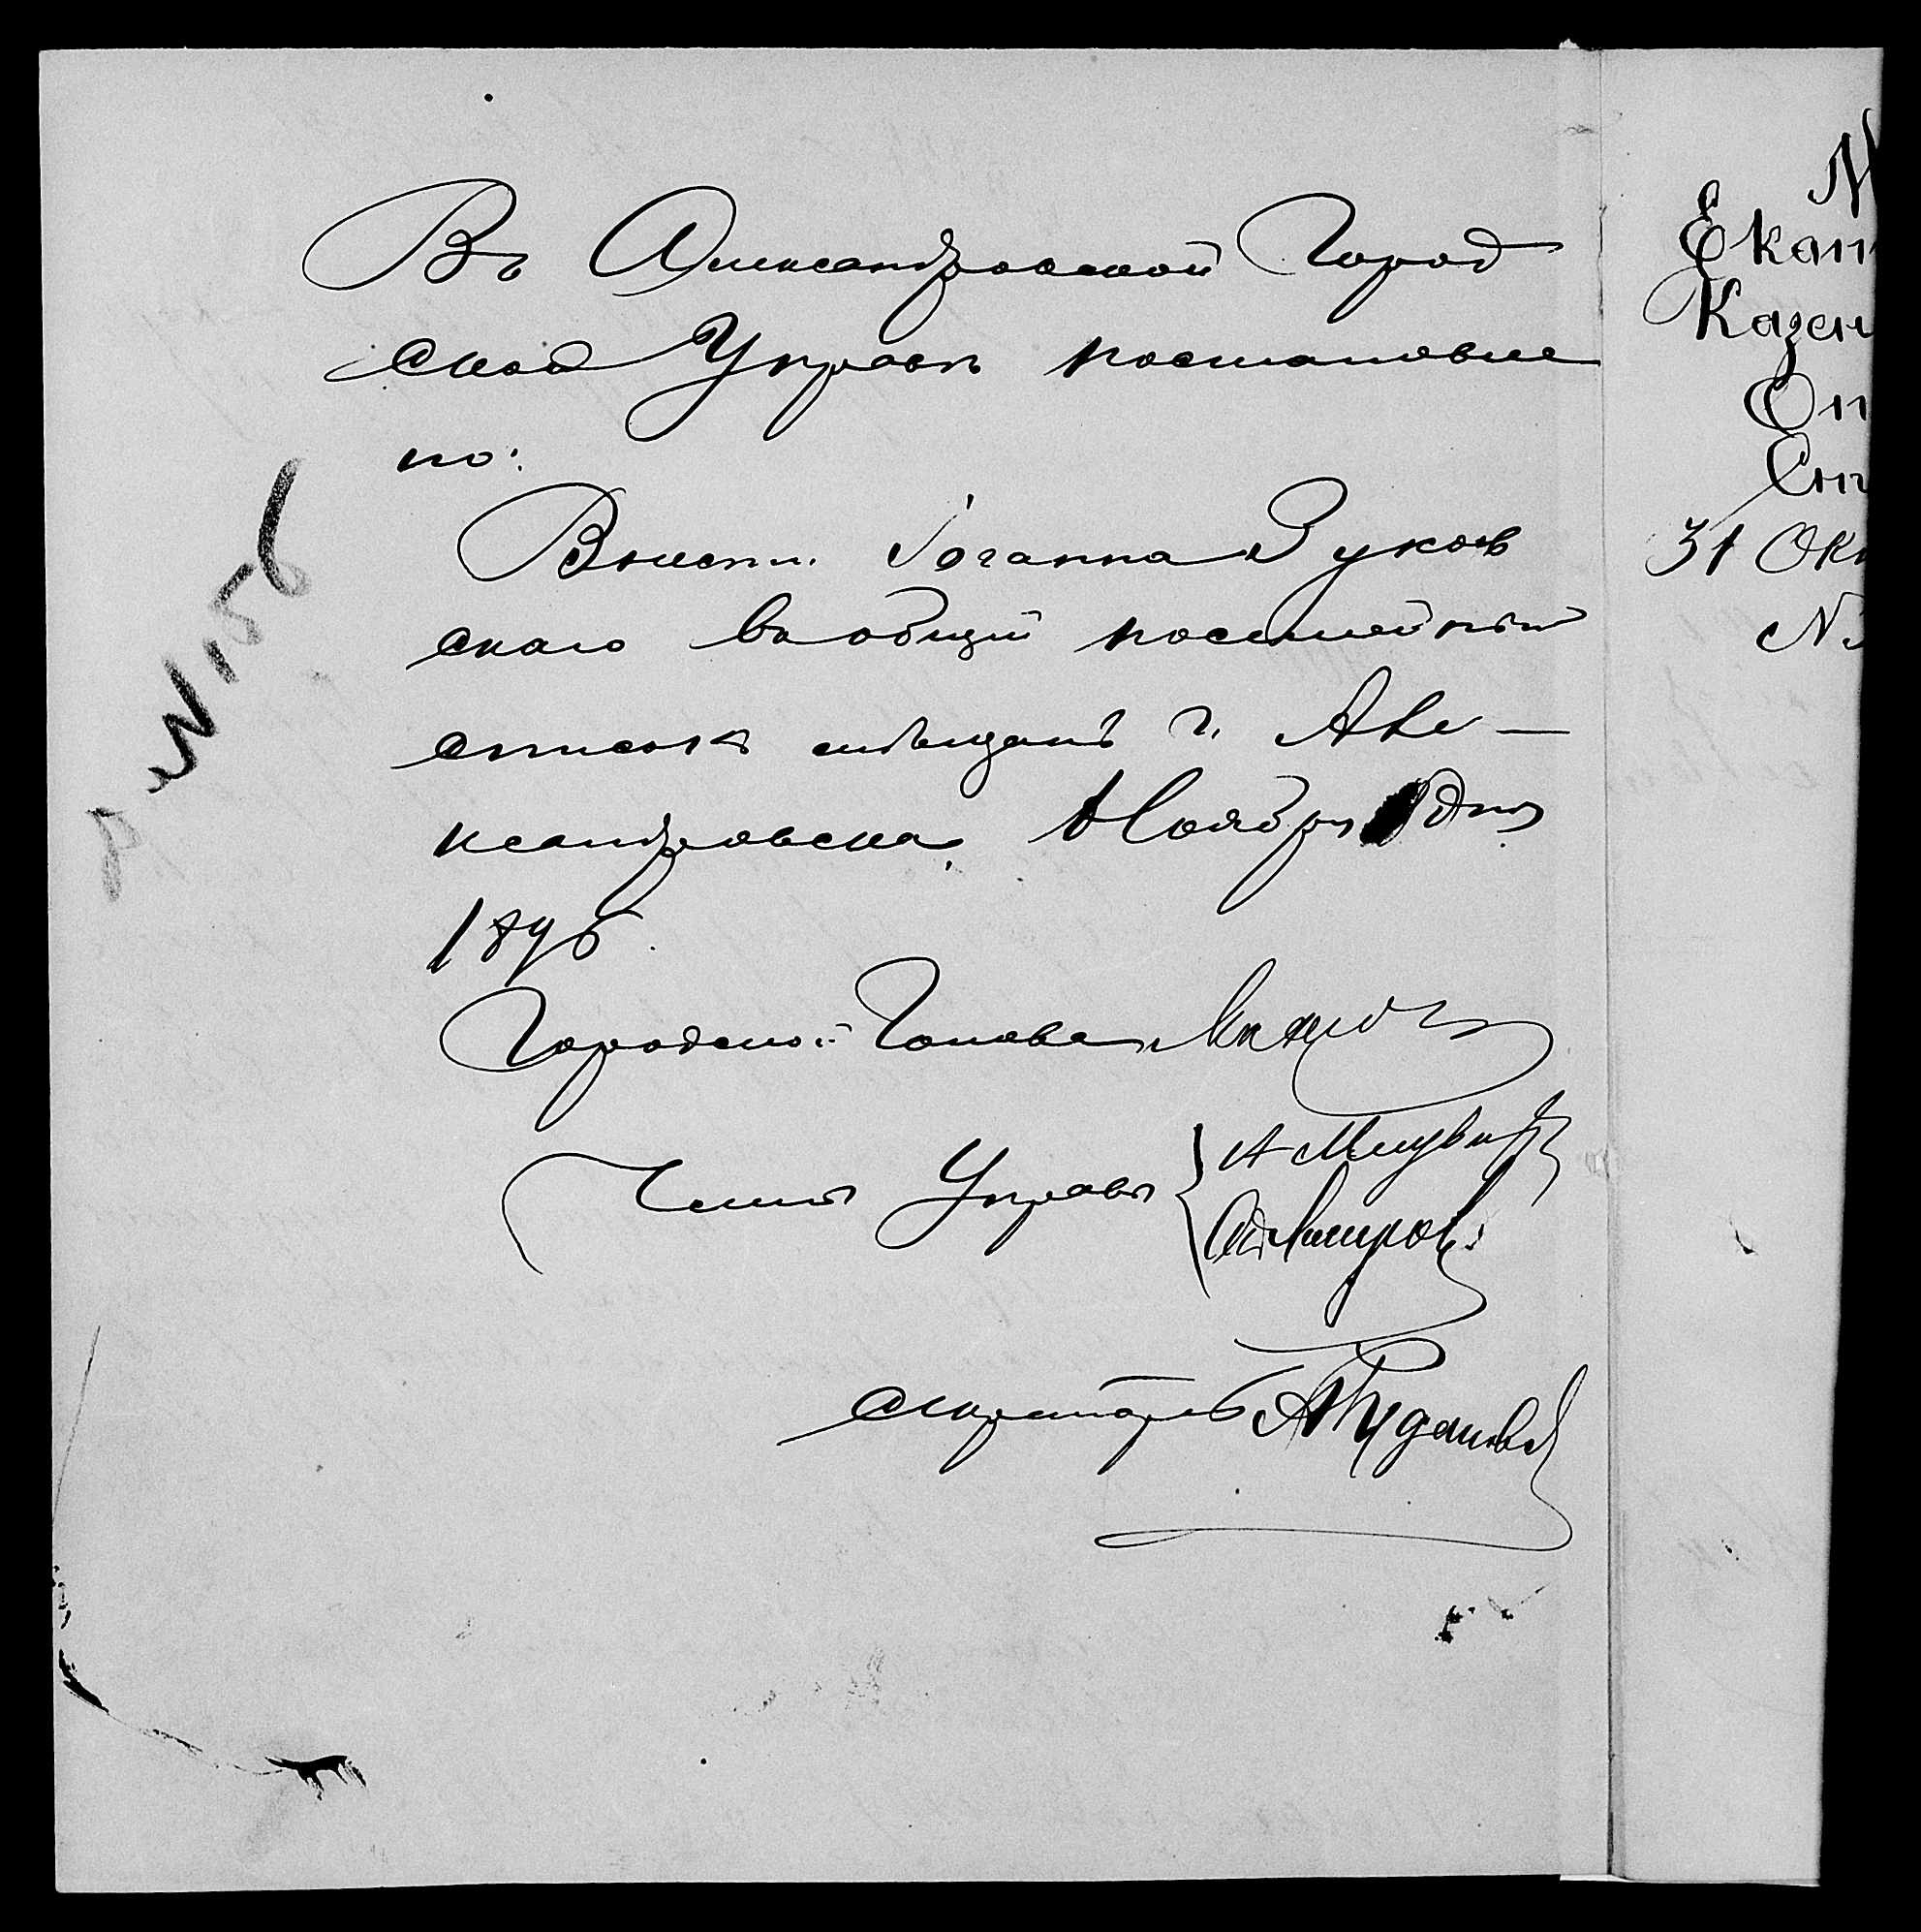 Въ Александровской Город
ской Управѣ постановле
но:
Внести Іоганна Зуков
скаго въ общій посемейный
списокъ мѣщанъ г. Але-
ксандровска, Ноября дня
1896
Городской Голова
Члены Управы
Секретарь
№ 156
Екат
Казен
От
Ст
31 Ок
№